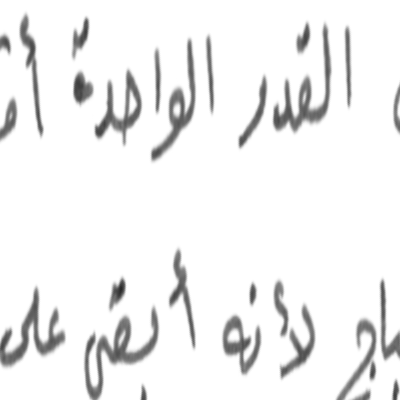 القدر الواحدة
لأنه أبقى على